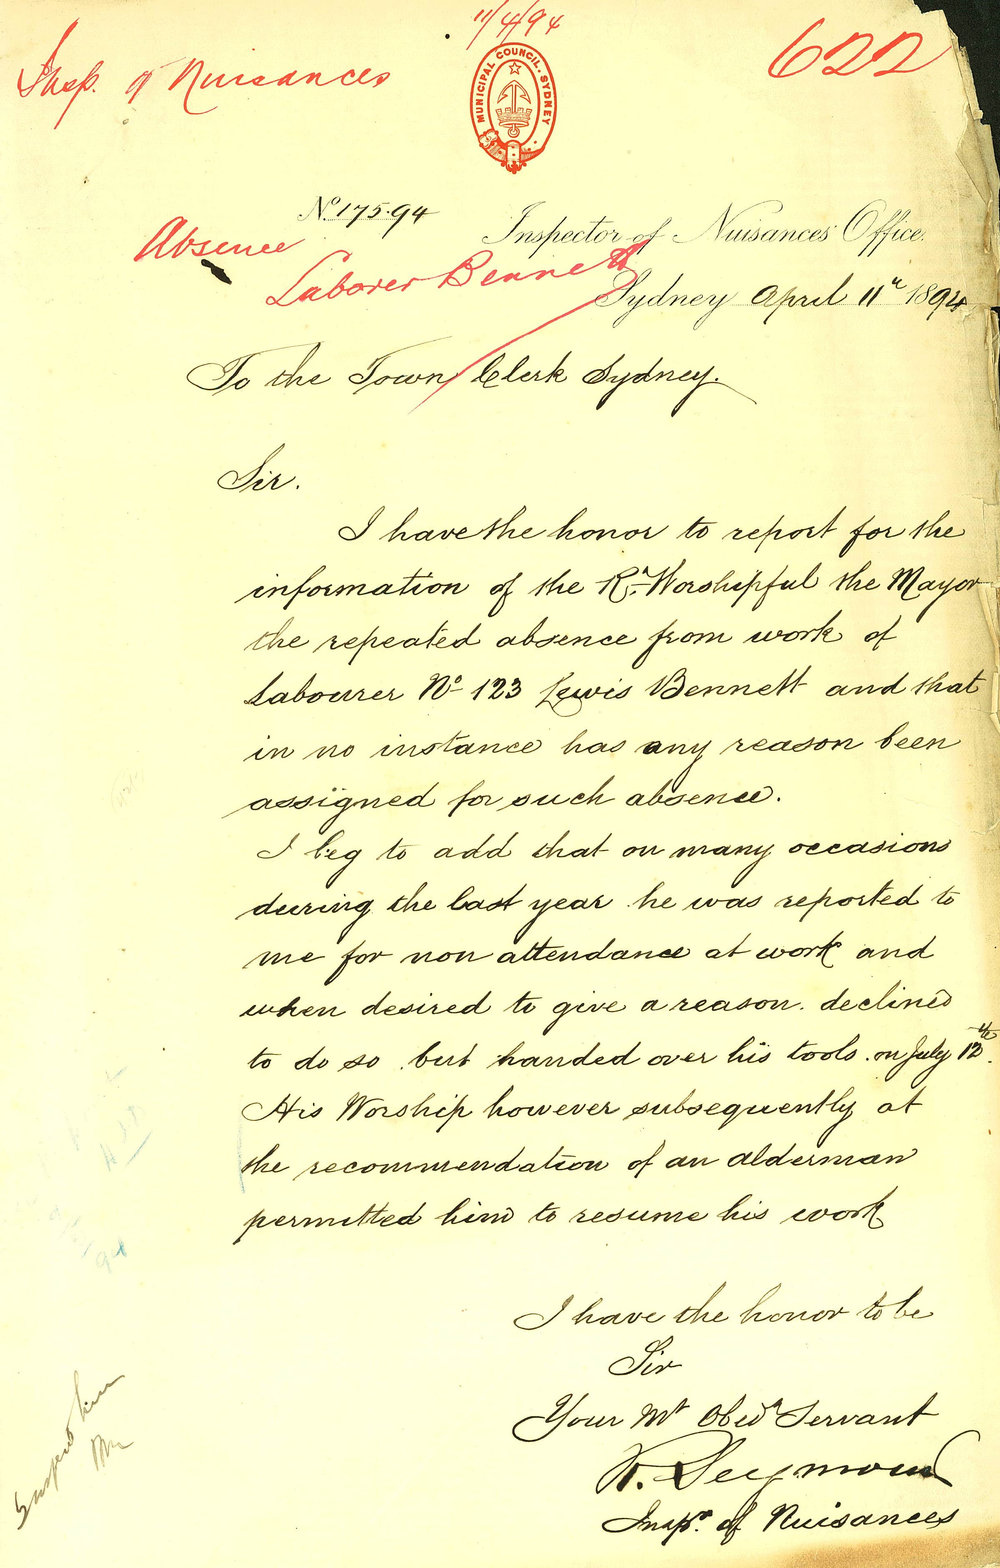 11/4/94
622
Insp. of Nuisances
MUNICIPAL COUNCIL. SYDNEY
No. 175.94
Inspector of Nuisances Office.
Absence
Laborer Bennett
Sydney April 11th 1894
To the Town Clerk Sydney.
Sir.
I have the honor to report for the
information of the Rt. Worshipful the Mayor
the repeated absence from work of
Labourer No 123 Lewis Bennett and that
in no instance has any reason been
assigned for such absence.
I beg to add that on many occasions
during the last year he was reported to
me for non attendance at work and
when desired to give a reason. declined
to do so but handed over his tools. on July 12th.
His Worship however subsequently at
the recommendation of an alderman
permitted him to resume his work
I have the honor to be
Sir
Your Mt Obedt Servant
R. Seymour
Inspr. of Nuisances
Suspend him